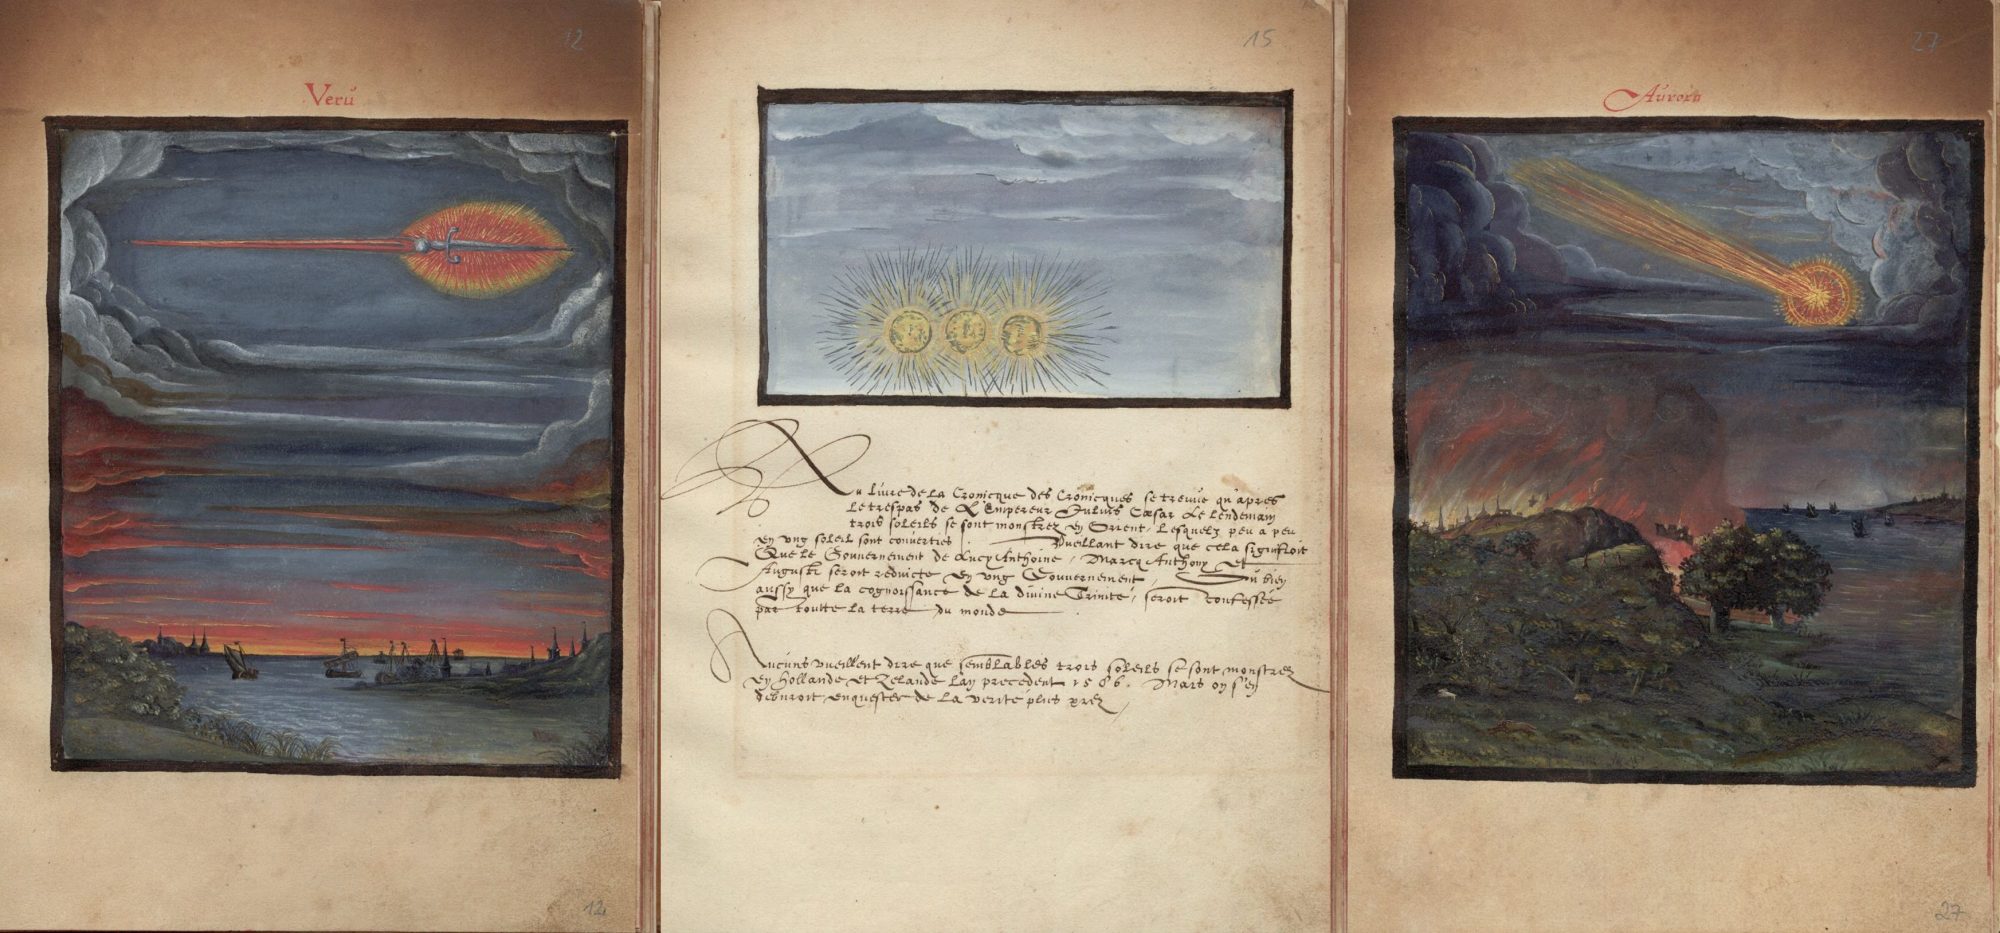 12
Verū
12
15
Au livre de la Cronicque des Cronicques se treuve qu'apres
le trespas de L'Empereur Julius Cæsar le lendemain
trois soleils se sont monstrez en Orient, lesquelz peu a peu
en ung soleil sont converties. Vueillant dire que cela signifioit
Que le Gouvernement de Lucy Anthoine, Marcq Anthony et
Auguste seroit reduicte en ung Gouvernement, Ou bien
aussy que la cognoissance de la divine Trinité, seroit confessée
par toutte la terre du monde
Aucuns vueillent dire que semblables trois soleils se sont monstrez
en Hollande et Zelande l'an precedent 1566. Mais on s'en
debvroit enquester de la verité plus prez,
27
Aurora
27